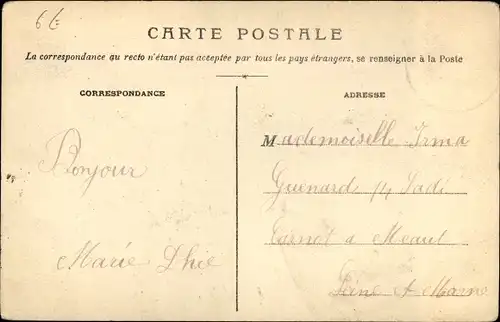 6f
CARTE POSTALE
La correspondance au recto n'étant pas acceptée par tous les pays étrangers, se renseigner à la Poste
CORRESPONDANCE
ADRESSE
Bonjour
Marie
Mademoiselle Irma
Guenard Sadi
Carnot a Meaux
Seine et Marne